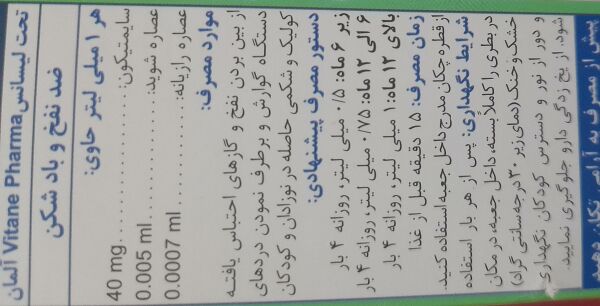 تحت لیسانس Vitane Pharma آلمان
ضد نفخ و باد شکن
هر ۱ میلی لیتر حاوی:
سایمتیکون: 40 mg
عصاره شوید: 0.005 ml
عصاره رازیانه: 0.0007 ml
موارد مصرف:
از بین بردن نفخ و گازهای احتباس یافته
دستگاه گوارش و برطرف نمودن دردهای
کولیک و شکمی حاصله در نوزادان و کودکان
دستور مصرف پیشنهادی:
زیر ۶ ماه: ۰/۵ میلی لیتر، روزانه ۴ بار
۶ الی ۱۲ ماه: ۰/۷۵ میلی لیتر، روزانه ۴ بار
بالای ۱۲ ماه: ۱ میلی لیتر، روزانه ۴ بار
زمان مصرف: ۱۵ دقیقه قبل از غذا
از قطره چکان مدرج داخل جعبه استفاده کنید.
شرایط نگهداری: پس از هر بار استفاده
در بطری را کاملاً بسته، داخل جعبه، در مکان
خشک و خنک (دمای زیر ۳۰ درجه سانتی گراد)
و دور از نور و دسترس کودکان نگهداری
شود. از یخ زدگی دارو جلوگیری نمایید.
پیش از مصرف به آرامی تکان دهید